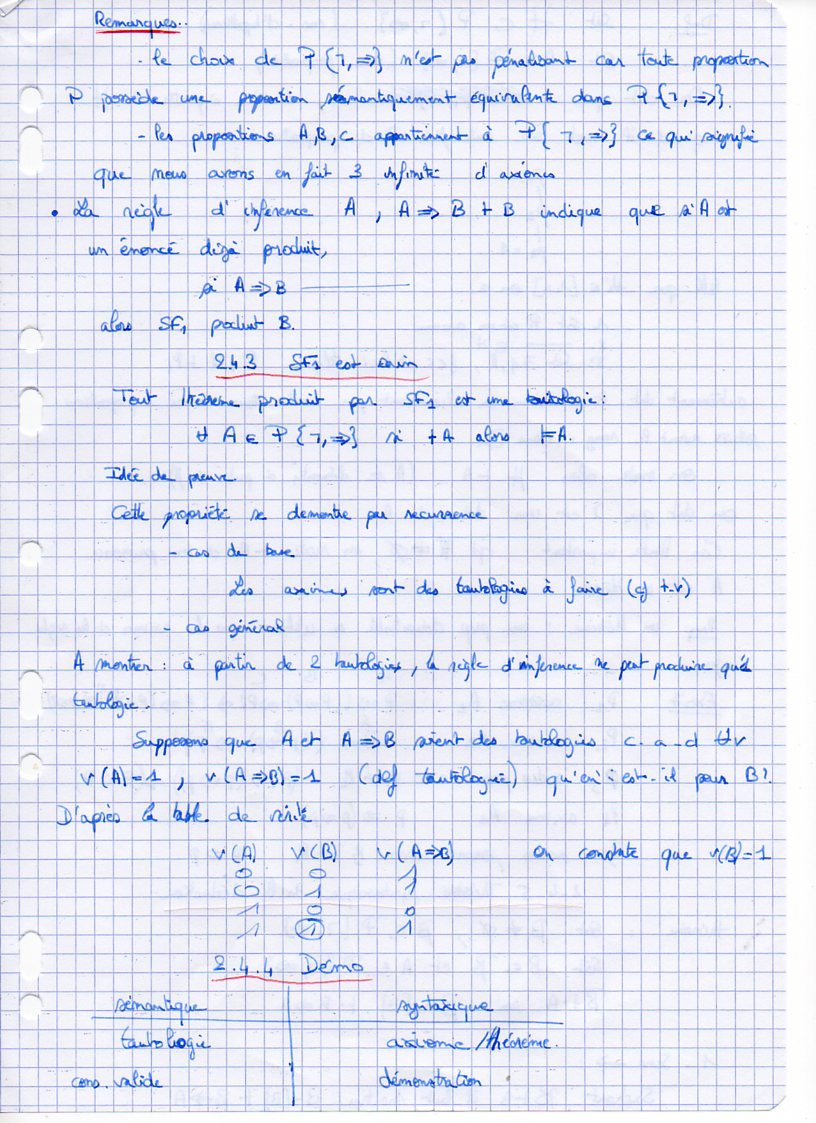 Remarques..
- le choix de P{¬,=>} n'est pas pénalisant car toute proposition
P possède une proposition sémantiquement équivalente dans P{¬,=>}.
- les propositions A,B,C appartiennent à P{¬,=>} ce qui signifie
que nous avons en fait 3 infinité d'axiomes
• La règle d'inférence A, A=>B ⊢ B indique que si A est
un énoncé déjà produit,
si A=>B ———
alors SF1 produit B.
2.4.3 SF1 est sain
Tout théorème produit par SF1 est une tautologie:
∀ A ∈ P{¬,=>} si ⊢A alors ⊨A.
Idée de preuve.
Cette propriété se demontre par recurrence
- cas de base
Les axiomes sont des tautologies à faire (cf t-v)
- cas général
A montrer : à partir de 2 tautologies, la règle d'inference ne peut produire qu'1
tautologie.
Supposons que A et A=>B soient des tautologies c.a-d ∀v
v(A)=1, v(A=>B)=1 (def tautologie) qu'en est-il pour B?
D'après la table de vérité
v(A) v(B) v(A=>B) on constate que v(B)=1
0 0 1
0 1 1
1 0 0
1 1 1
2.4.4 Démo
sémantique syntaxique
tautologie axiome/théorème.
cons. valide démonstration